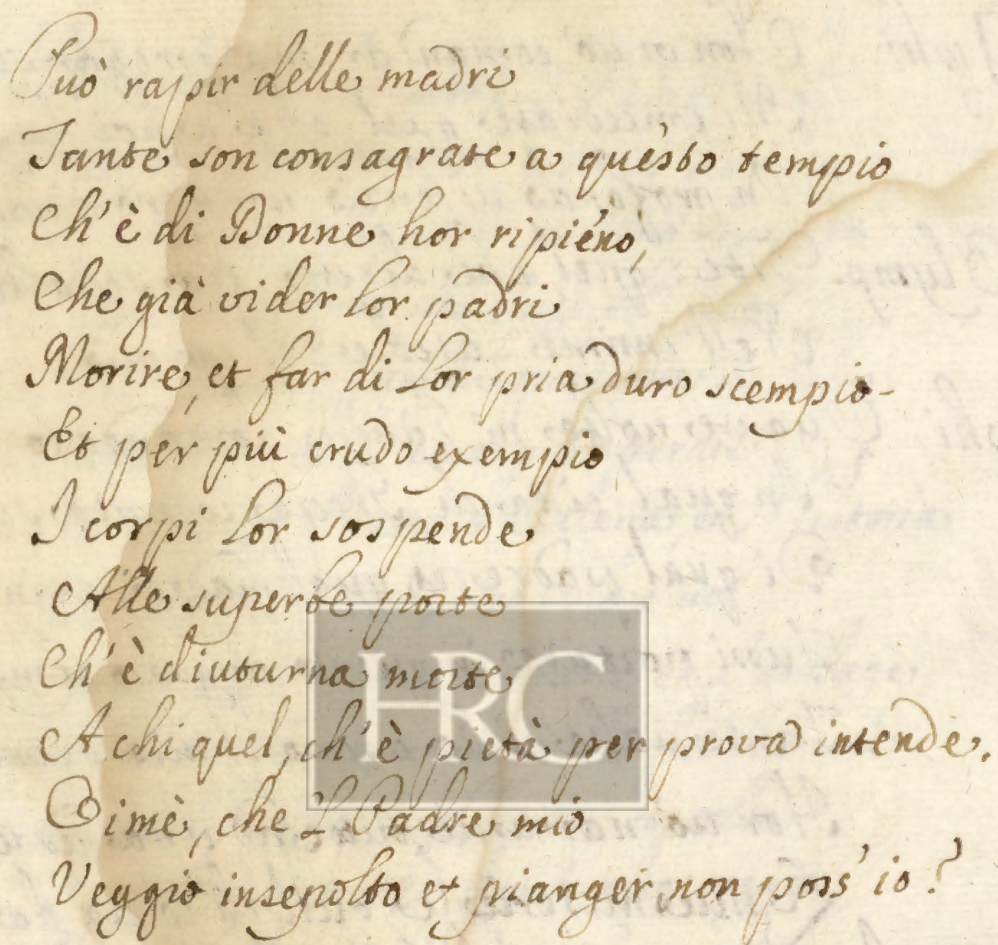 Può rapir delle madri
Tante son consagrate a questo tempio
Ch'è di Donne hor ripieno,
Che già vider lor padri
Morire, et far di Lor pria duro scempio-
Et per più crudo exempio
I corpi Lor sospende
Alle superbe porte
Ch'è diuturna morte
A chi quel, ch'è pietà per prova intende.
Oimè, che 'l Padre mio
Veggio insepolto et pianger non poss' io?
HRC